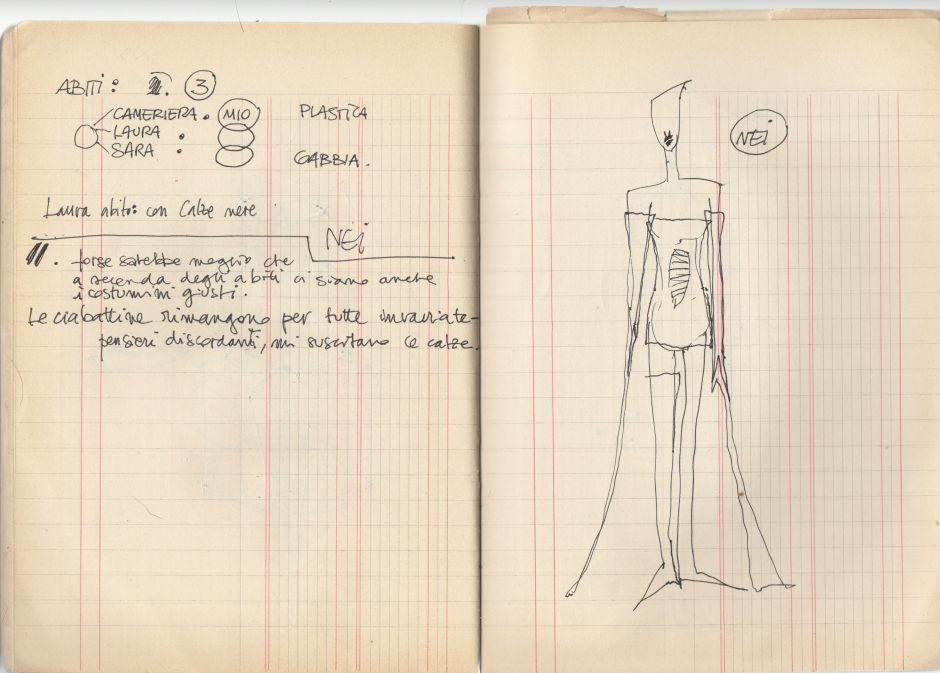 ABITI: 3
CAMERIERA. MIO PLASTICA
LAURA .
SARA . GABBIA.
Laura abito: con Calze nere
NEi
. forse sarebbe meglio che
a seconda degli abiti ci siano anche
i costumini giusti.
Le ciabattine rimangono per tutte invariate-
pensieri discordanti, mi suscitano le calze.
NEi